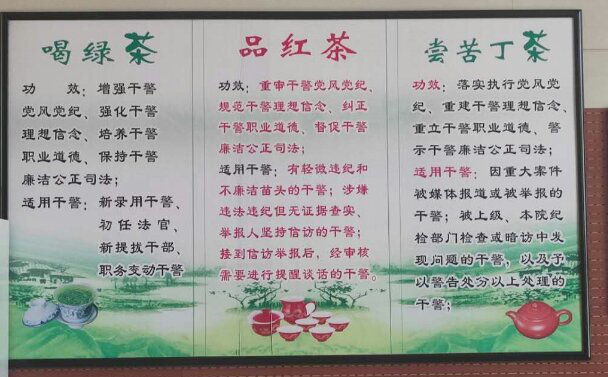 喝绿茶
功 效：增强干警
党风党纪、强化干警
理想信念、培养干警
职业道德、保持干警
廉洁公正司法；
适用干警：新录用干警、
初任法官、
新提拔干部、
职务变动干警
品红茶
功效：重审干警党风党纪、
规范干警理想信念、纠正
干警职业道德、督促干警
廉洁公正司法；
适用干警：有轻微违纪和
不廉洁苗头的干警；涉嫌
违法违纪但无证据查实、
举报人坚持信访的干警；
接到信访举报后，经审核
需要进行提醒谈话的干警。
尝苦丁茶
功效：落实执行党风党
纪、重建干警理想信念、
重立干警职业道德、警
示干警廉洁公正司法；
适用干警：因重大案件
被媒体报道或被举报的
干警；被上级、本院纪
检部门检查或暗访中发
现问题的干警，以及予
以警告处分以上处理的
干警；